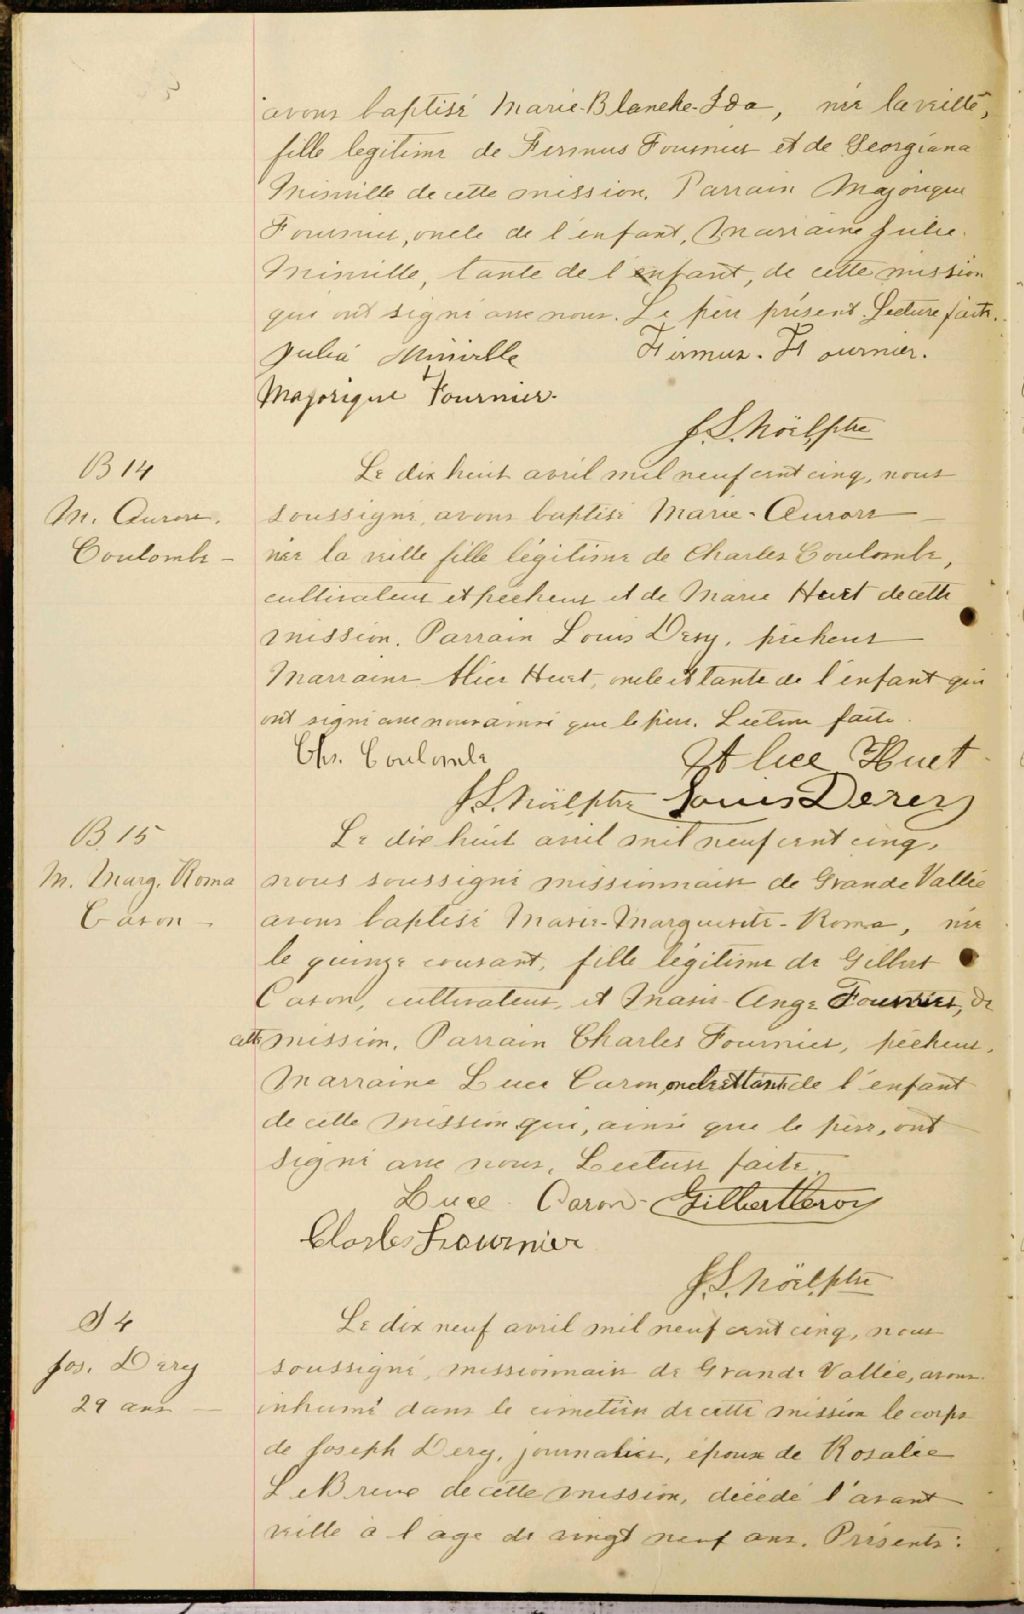 avons baptisé Marie-Blanche-Ida, née la veille,
fille legitime de Firmus Fournier et de Georgiana
Minville de cette mission. Parrain Majorique
Fournier, oncle de l'enfant, Marraine Julie
Minville, tante de l'enfant, de cette mission
qui ont signé avec nous. Le père présent. Lecture faite.
Julia Minville Firmus. Fournier.
Majorique Fournier.
J. S. Noël, ptre
B 14
M. Aurore.
Coulombe -
Le dix huit avril mil neuf cent cinq, nous
soussigné, avons baptisé Marie-Aurore
née la veille fille légitime de Charles Coulombe,
cultivateur et pêcheur et de Marie Huet de cette
mission. Parrain Louis Dery, pêcheur
Marraine Alice Huet, oncle et tante de l'enfant qui
ont signé avec nous ainsi que le père. Lecture faite.
Chs. Coulombe Alice Huet
J. S. Noël, ptre Louis Derey
B 15
M. Marg. Roma
Caron -
Le dix huit avril mil neuf cent cinq,
nous soussigné missionnaire de Grande Vallée
avons baptisé Marie-Marguerite-Roma, née
le quinze courant, fille légitime de Gilbert
Caron, cultivateur, et Marie-Ange Fournier, de
cette mission. Parrain Charles Fournier, pêcheur,
Marraine Luce Caron, oncle et tante de l'enfant
de cette mission qui, ainsi que le père, ont
signé avec nous. Lecture faite.
Luce Caron - Gilbert
Charles Fournier
J. S. Noël, ptre
S 4
Jos. Dery
29 ans -
Le dix neuf avril mil neuf cent cinq, nous
soussigné, missionnaire de Grande Vallée, avons
inhumé dans le cimetière de cette mission le corps
de Joseph Dery, journalier, époux de Rosalie
LeBreux de cette mission, décédé l'avant
veille à l'age de vingt neuf ans. Présents: